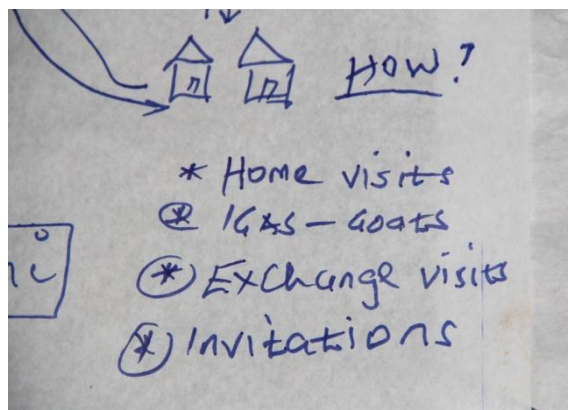 HOW?
* Home visits
* IGAS - Goats
* Exchange visits
* Invitations